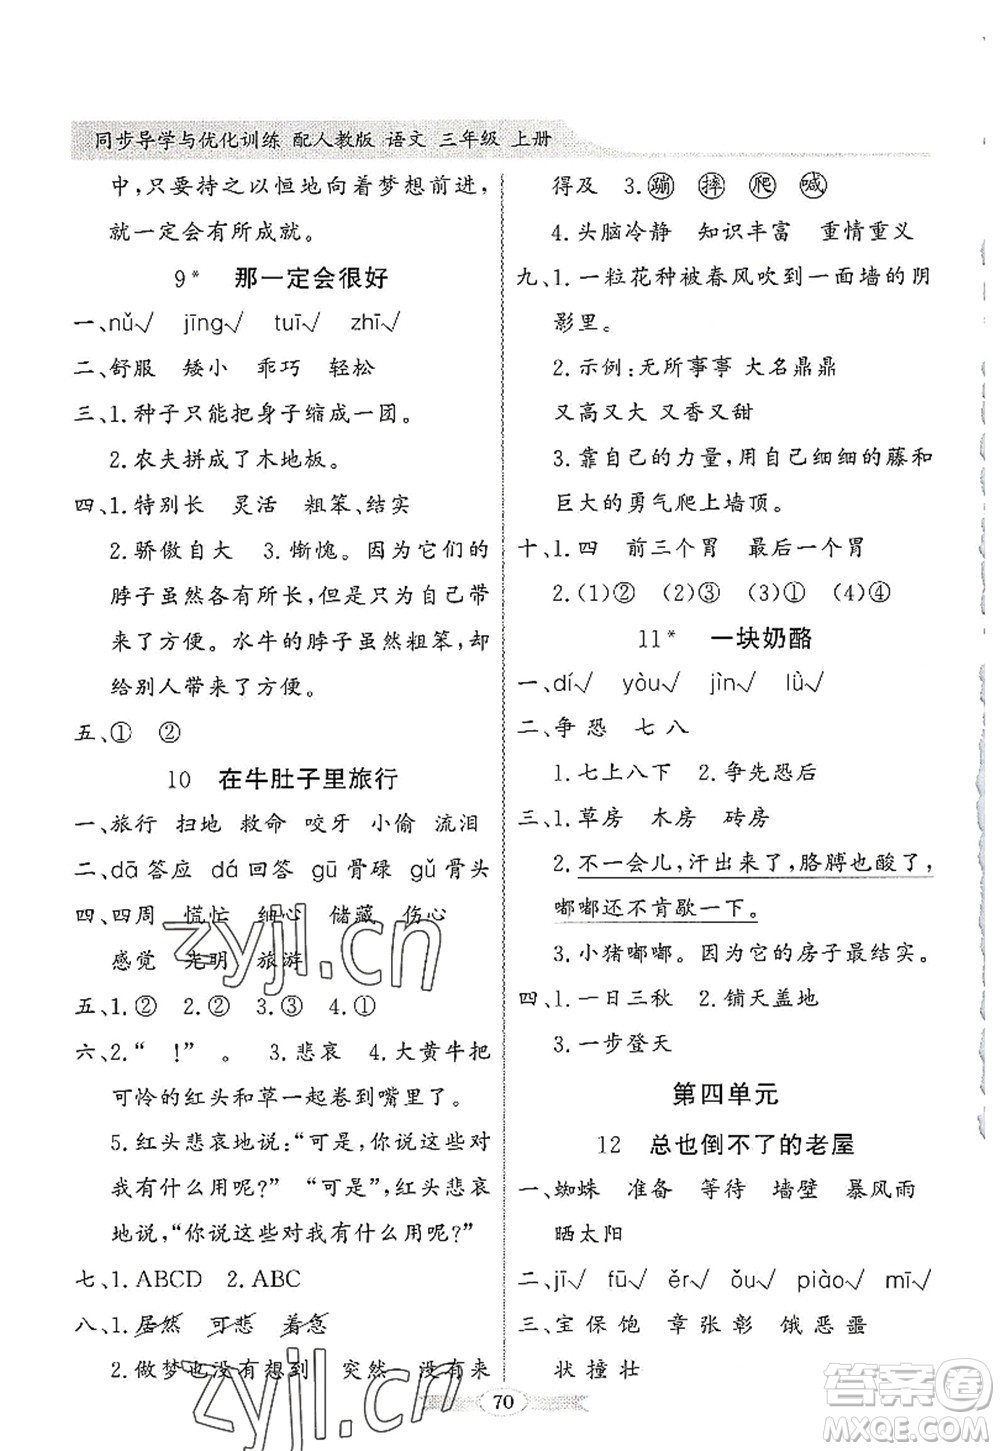 同步导学与优化训练 配人教版 语文 三年级 上册
中,只要持之以恒地向着梦想前进,
就一定会有所成就。
9* 那一定会很好
一、nǚ√ jīng√ tuī√ zhī√
二、舒服 矮小 乖巧 轻松
三、1.种子只能把身子缩成一团。
2.农夫拼成了木地板。
四、1.特别长 灵活 粗笨、结实
2.骄傲自大 3.惭愧。因为它们的
脖子虽然各有所长,但是都给自己带
来了方便。水牛的脖子虽然粗笨,却
给别人带来了方便。
五、① ②
10 在牛肚子里旅行
一、旅行 扫地 救命 咬牙 小偷 流泪
二、dā答应 dá回答 gū骨碌 gǔ骨头
四、四周 慌忙 细心 储藏 伤心
感觉 光明 旅游
五、1.② 2.② 3.② 4.①
六、2.“ !” 。 3.悲哀 4.大黄牛把
可怜的红头和草一起卷到嘴里了。
5.红头悲哀地说:“可是,你说这些对
我有什么用呢?” “可是”,红头悲哀
地说,“你说这些对我有什么用呢?”
七、1.ABCD 2.ABC
八、1.居然 可悲 着急
2.做梦也没有想到 突然 没有来
得及 3.蹦 摔 爬 喊
4.头脑冷静 知识丰富 重情重义
九、1.一粒花种被春风吹到一面墙的阴
影里。
2.示例:无所事事 大名鼎鼎
又高又大 又香又甜
3.靠自己的力量,用自己细细的藤和
巨大的勇气爬上墙顶。
十、1.四 前三个胃 最后一个胃
2.(1)② (2)③ (3)① (4)④
11* 一块奶酪
一、dí√ yòu√ jìn√ lǜ√
二、争 恐 七 八
1.七上八下 2.争先恐后
三、1.草房 木房 砖房
2.不一会儿,汗出来了,胳膊也酸了,
嘟嘟还不肯歇一下。
3.小猪嘟嘟。因为它的房子最结实。
四、1.一日三秋 2.铺天盖地
3.一步登天
第四单元
12 总也倒不了的老屋
一、蜘蛛 准备 等待 墙壁 暴风雨
晒太阳
二、jī√ fū√ ěr√ ǒu√ piào√ mī√
三、宝 保 饱 章 张 彰 饿 恶 噩
状 撞 壮
70
zyjl.cn
zyjl.cn
答案圈
MXQE.COM